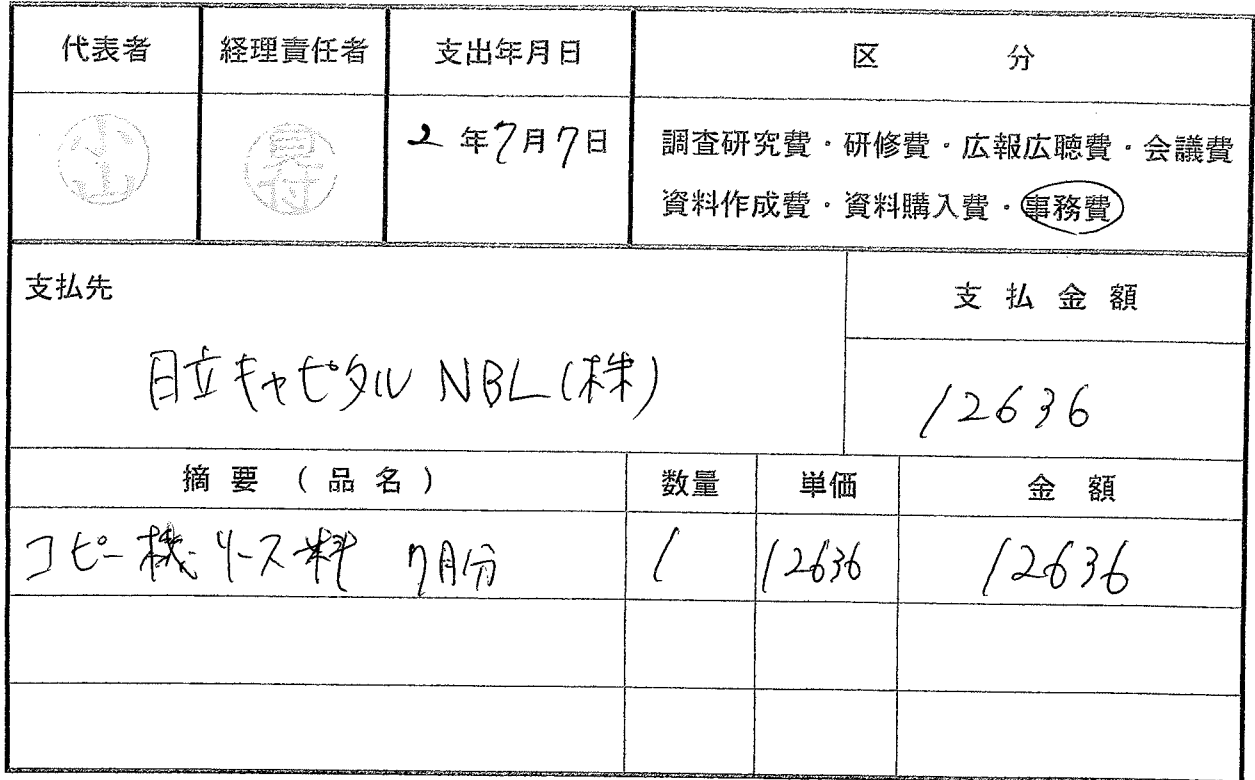 代表者 経理責任者 支出年月日 区 分
小山
2 年7月7日
調査研究費・研修費・広報広聴費・会議費
資料作成費・資料購入費・事務費
支払先 支払金額
日立キャピタル NBL(株)
12636
摘要(品名) 数量 単価 金額
コピー機リース料 7月分 1 12636 12636